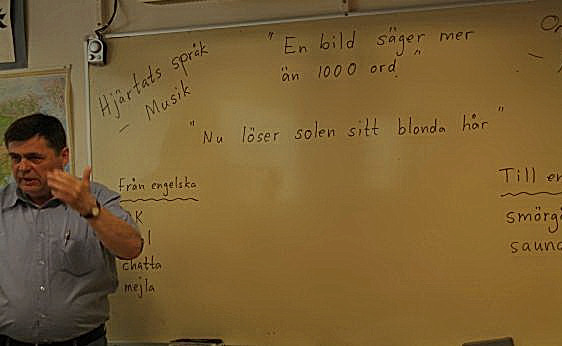 Hjärtats språk
– Musik
"En bild säger mer
än 1000 ord"
"Nu löser solen sitt blonda hår"
Från engelska
chatta
mejla
Till